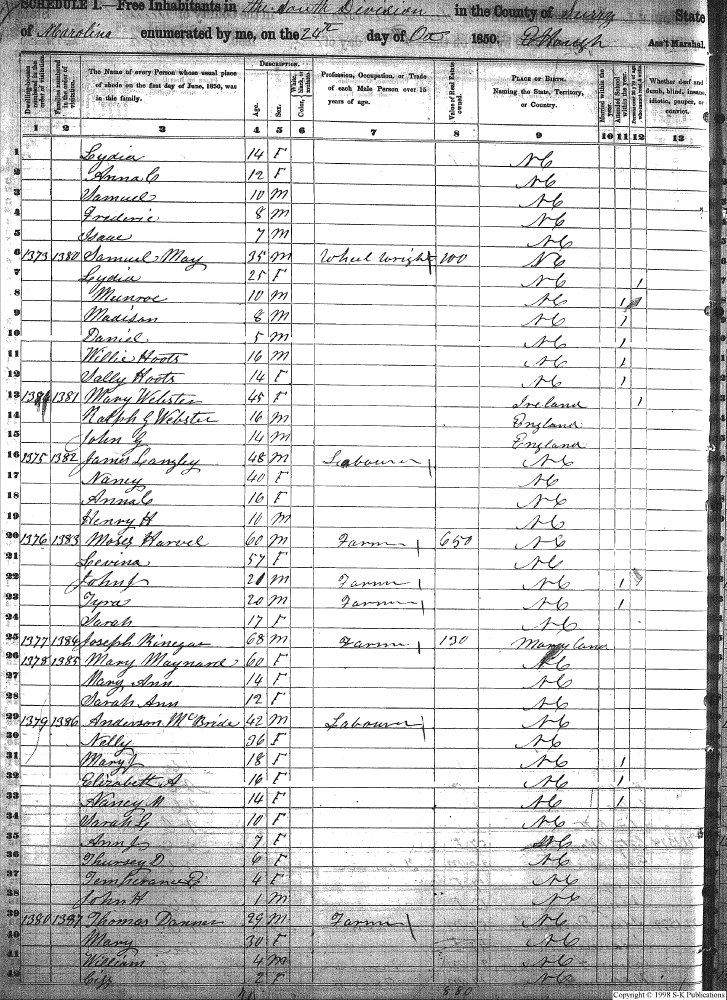 SCHEDULE I.—Free Inhabitants in the South Division in the County of Surry State
of Carolina enumerated by me, on the 24th day of Oct 1850. Ass't Marshal.
Dwelling-houses numbered in the order of visitation.
Families numbered in the order of visitation.
The Name of every Person whose usual place of abode on the first day of June, 1850, was in this family.
DESCRIPTION.
Age.
Sex.
Color, White, black, or mulatto.
Profession, Occupation, or Trade of each Male Person over 15 years of age.
Value of Real Estate owned.
PLACE OF BIRTH.
Naming the State, Territory, or Country.
Married within the year.
Attended School within the year.
Whether deaf and dumb, blind, insane, idiotic, pauper, or convict.
1 2 3 4 5 6 7 8 9 10 11 12 13
1 Lydia 14 F NC
2 Anna C 12 F NC
3 Samuel 10 M NC
4 Frederic 8 M NC
5 Isaac 7 M NC
6 1373 1380 Samuel May 35 M Wheel wright 200 NC
7 Lydia 25 F NC 1
8 Munroe 10 M NC 1
9 Madison 8 M NC 1
10 Daniel 5 M NC 1
11 Willie Hoots 16 M NC 1
12 Sally Hoots 14 F NC 1
13 1381 Mary Webster 45 F Ireland 1
14 Ralph G Webster 16 M England
15 John G 14 M England
16 1375 1382 James Langley 48 M Labourer NC
17 Nancy 40 F NC
18 Anna C 16 F NC
19 Henry H 10 M NC
20 1376 1383 Moses Harvel 60 M Farmer 650 NC
21 Levina 57 F NC
22 John J 21 M Farmer NC 1
23 Tyra 20 M Farmer NC 1
24 Sarah 17 F NC
25 1377 1384 Joseph Rinegar 68 M Farmer 130 Maryland
26 1378 1385 Mary Maynard 60 F NC
27 Mary Ann 14 F NC
28 Sarah Ann 12 F NC
29 1379 1386 Anderson McBride 42 M Labourer NC
30 Nelly 36 F NC
31 Mary J 18 F NC 1
32 Elizabeth A 16 F NC 1
33 Nancy M 14 F NC 1
34 Sarah G 10 F NC
35 Ann J 7 F NC
36 Thursey D 6 F NC
37 Temperance 4 F NC
38 John H 1 M NC
39 1380 1387 Thomas Danner 29 M Farmer NC
40 Mary 30 F NC
41 William 4 M NC
42 2 F NC
Copyright © 1998 S-K Publications